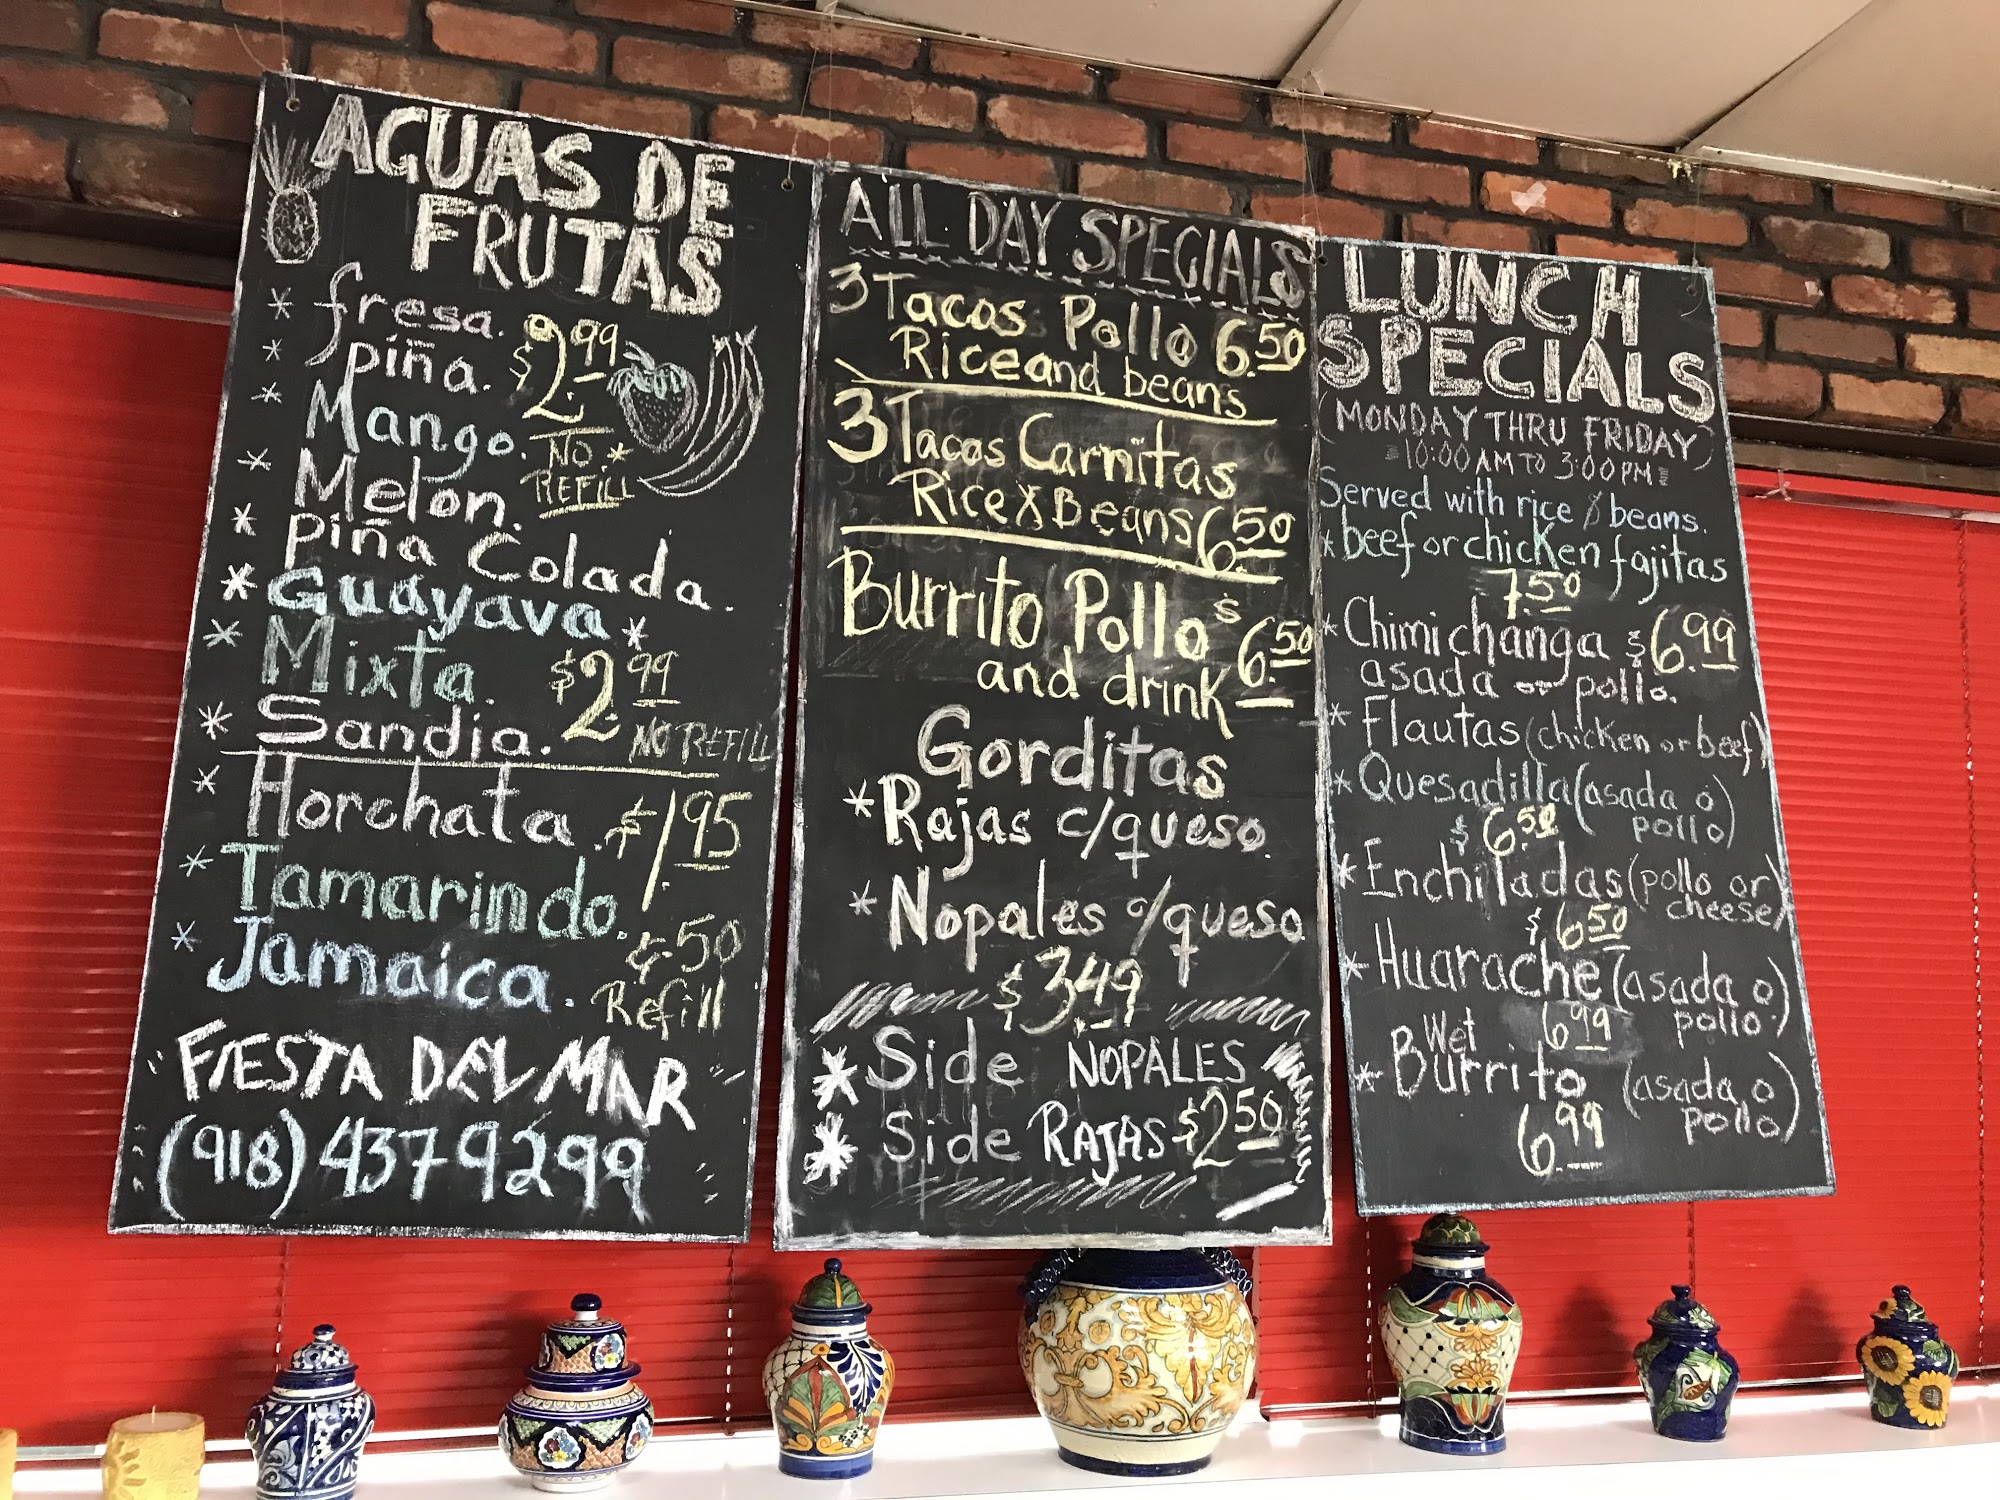 AGUAS DE
FRUTAS
* fresa.
* piña. $2.99
* Mango. NO *
REFILL
* Melon.
* piña Colada.
* Guayava *
* Mixta. $2.99
* Sandia. NO REFILL
* Horchata. $1.95
* Tamarindo.
* Jamaica. ¢50
Refill
FIESTA DEL MAR
(918) 437 9299
ALL DAY SPECIALS
3 Tacos Pollo 6.50
Rice and beans
3 Tacos Carnitas
Rice & Beans 6.50
Burrito Pollo $6.50
and drink
Gorditas
* Rajas c/queso.
* Nopales c/queso
$3.49
* Side NOPALES
* Side RAJAS $2.50
LUNCH
SPECIALS
(MONDAY THRU FRIDAY)
10:00 AM TO 3:00 PM
Served with rice & beans.
* beef or chicken fajitas
7.50
* Chimichanga $6.99
asada or pollo.
* Flautas (chicken or beef)
* Quesadilla (asada o
$6.50 pollo)
* Enchiladas (pollo or
cheese)
$6.50
* Huarache (asada o
6.99 pollo)
Wet
* Burrito (asada o
pollo)
6.99